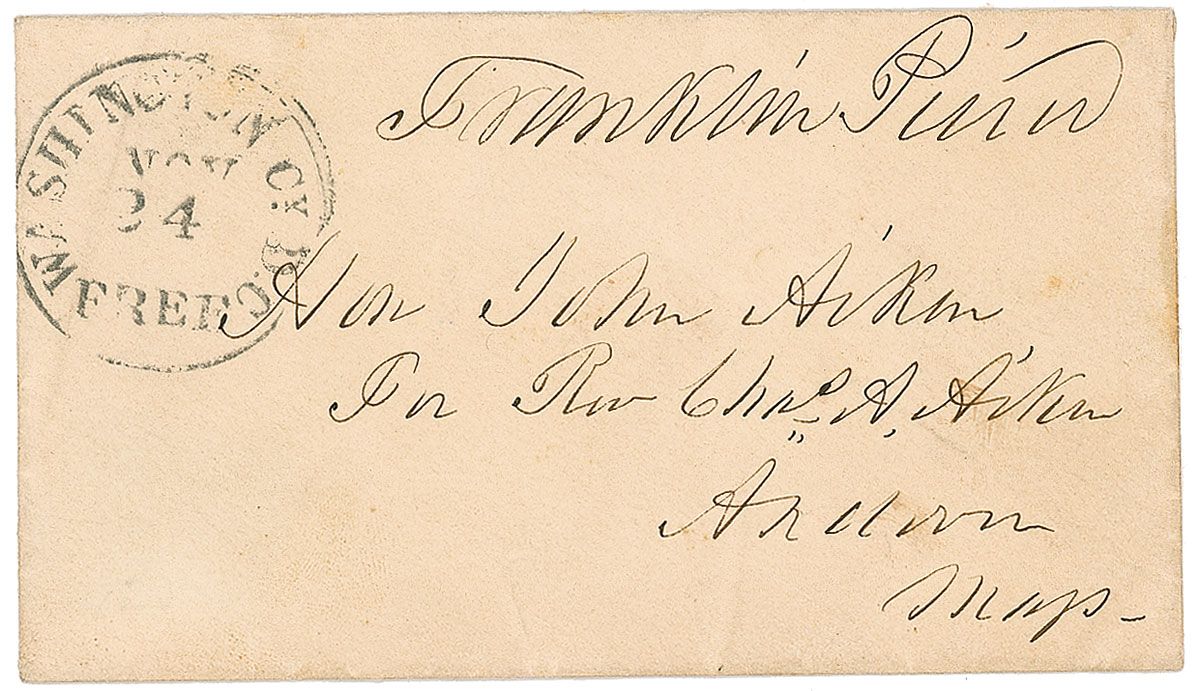 WASHINGTON CY. D.C.
NOV
24
FREE
Franklin Pierce
Hon John Aiken
For Rev Chas. A. Aiken
Andover
Mass-